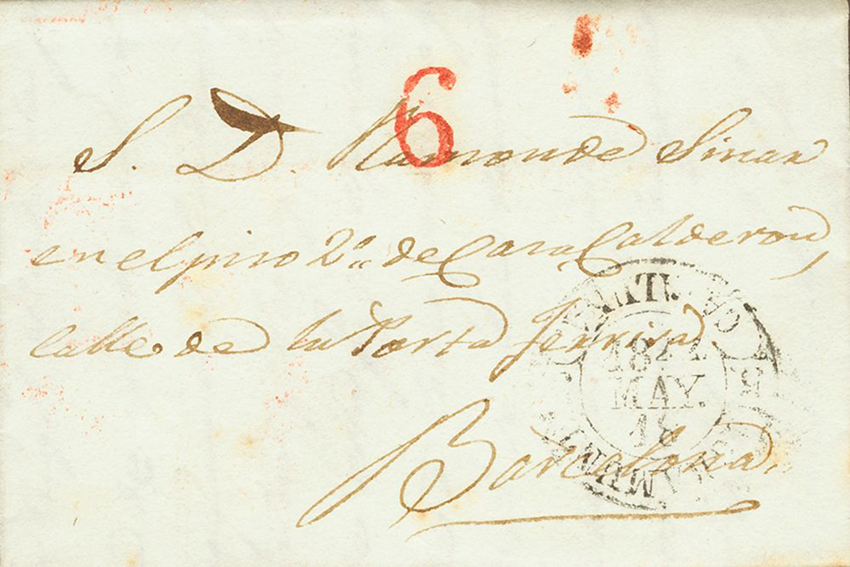 6
S. D. Ramon de Sinan
en el piso 2º de Casa Calderon,
calle de la Porta ferrisa.
MAY.
18
Barcelona.